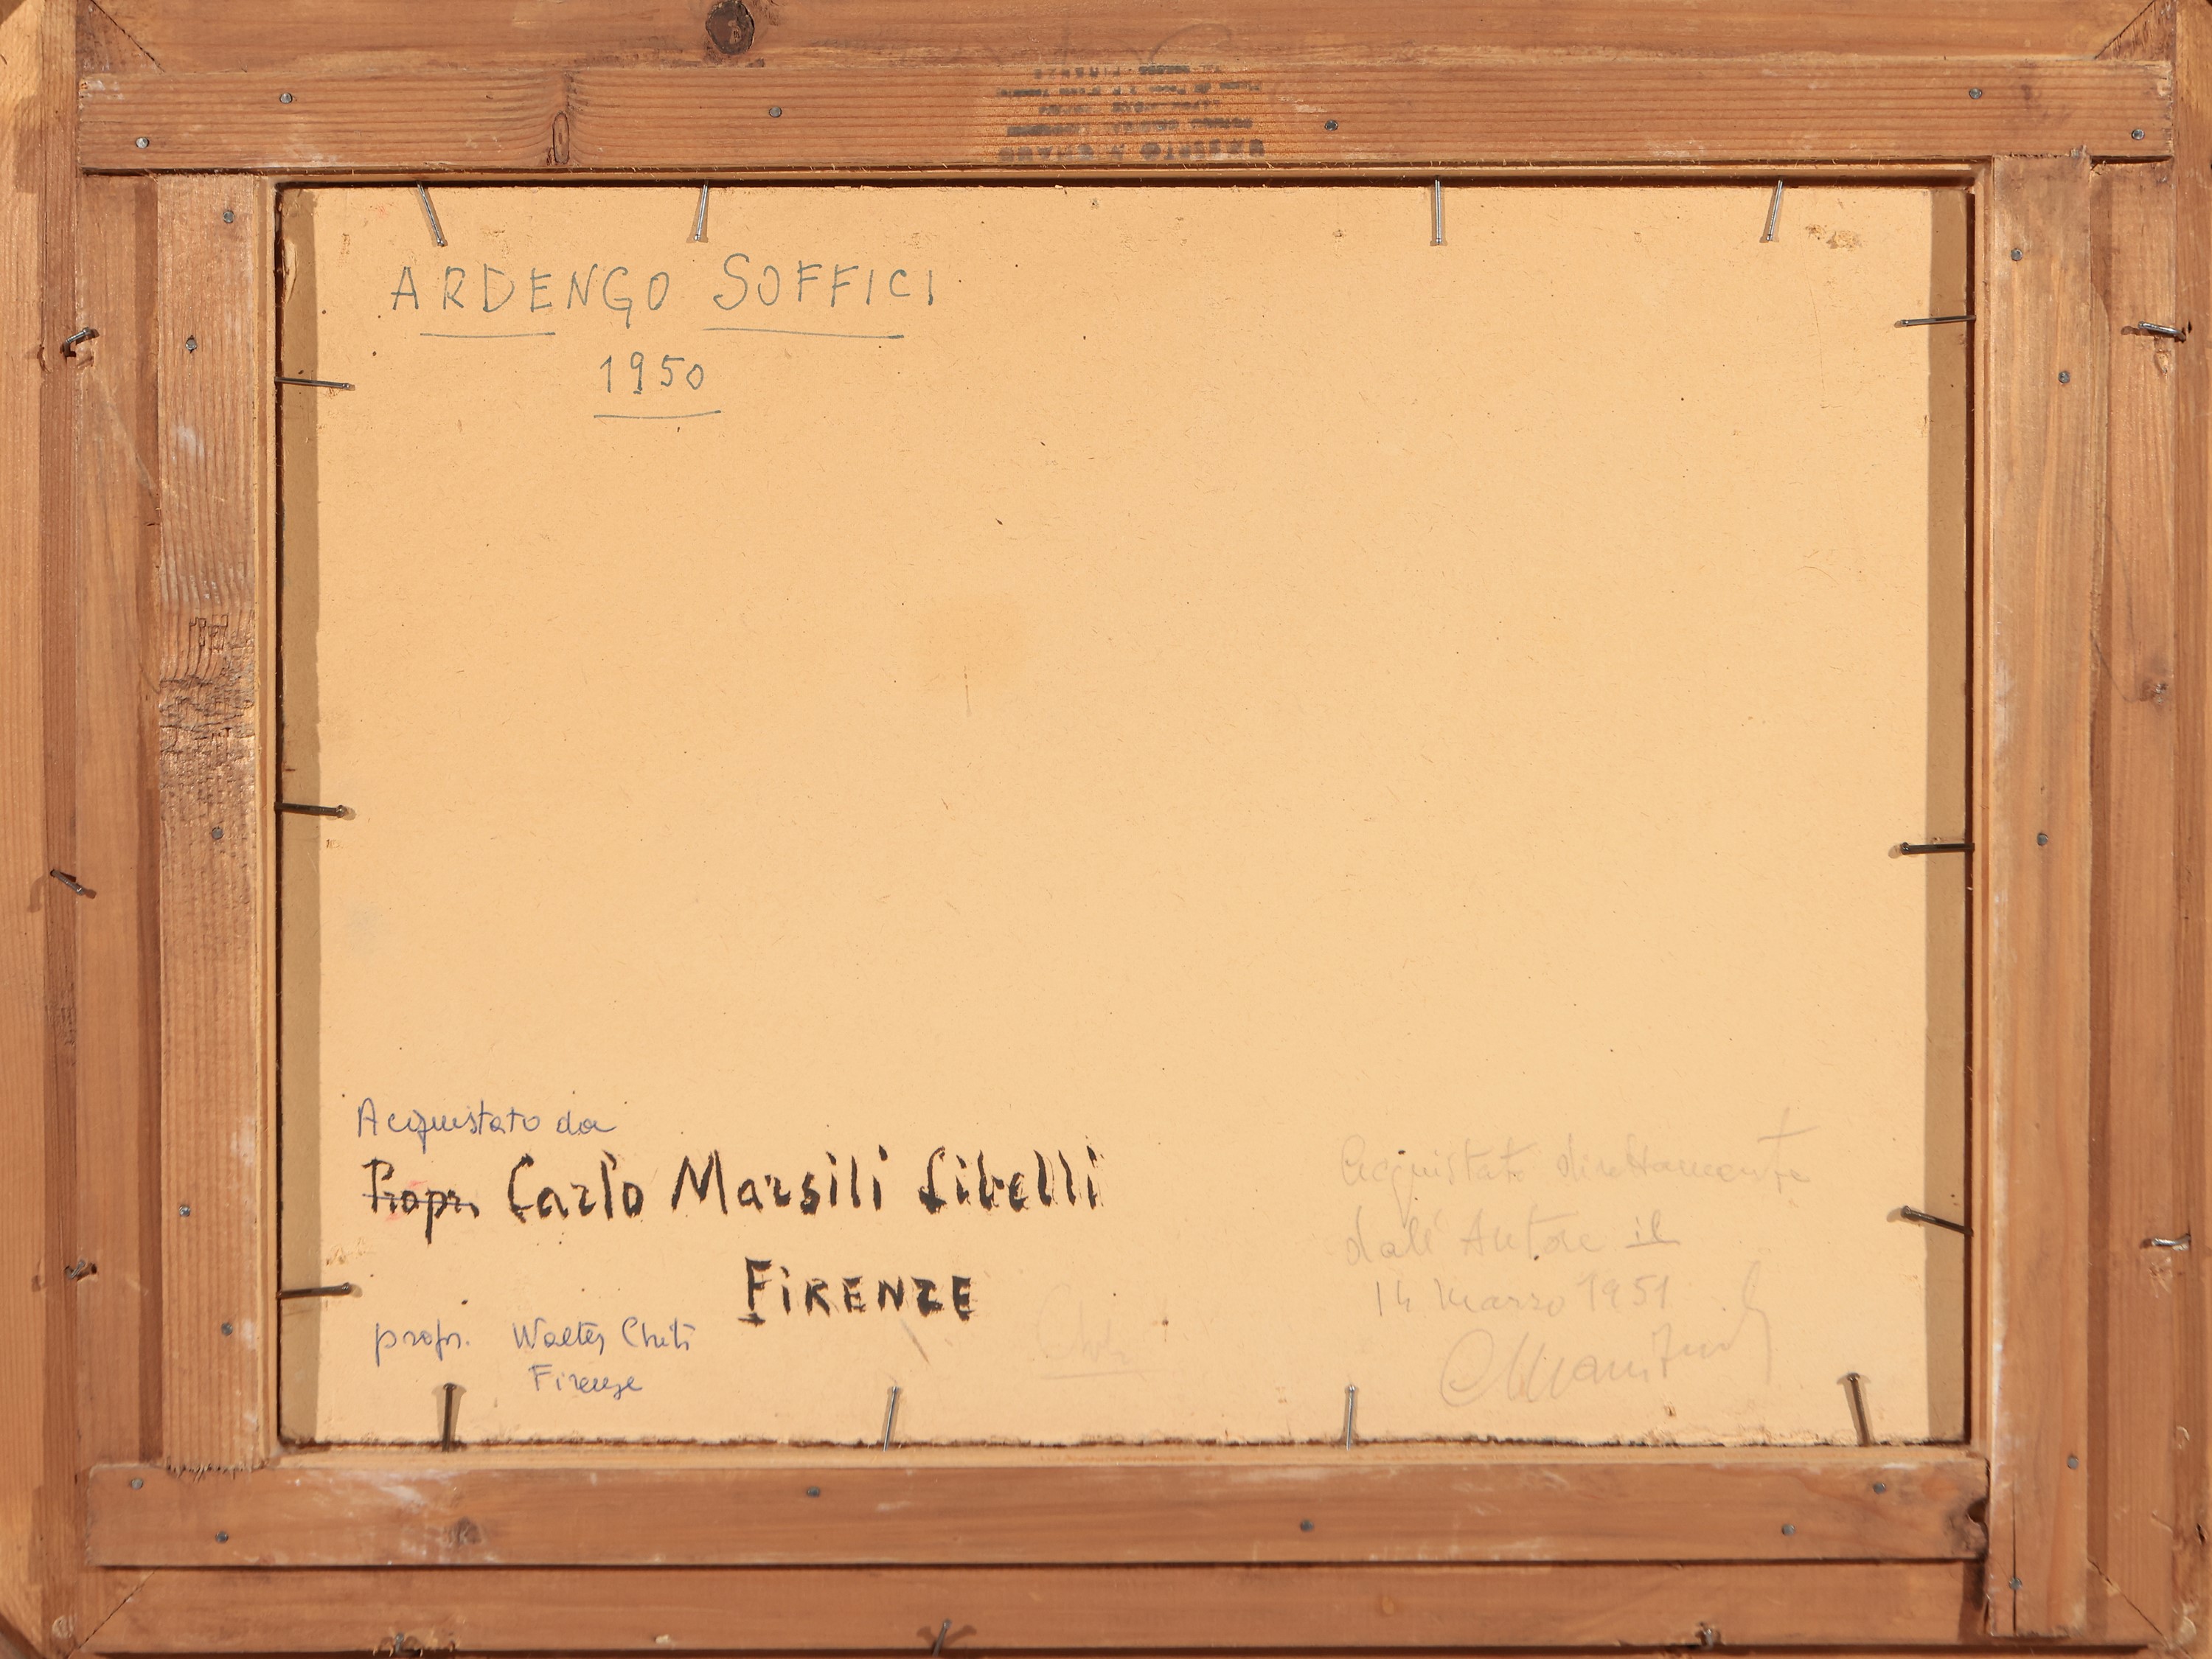 ARDENGO SOFFICI
1950
Acquistato da
Propr. Carlo Marsili Libelli
FIRENZE
propr. Walter Chiti
Firenze
Acquistato direttamente
dall'Autore il
14 Marzo 1951